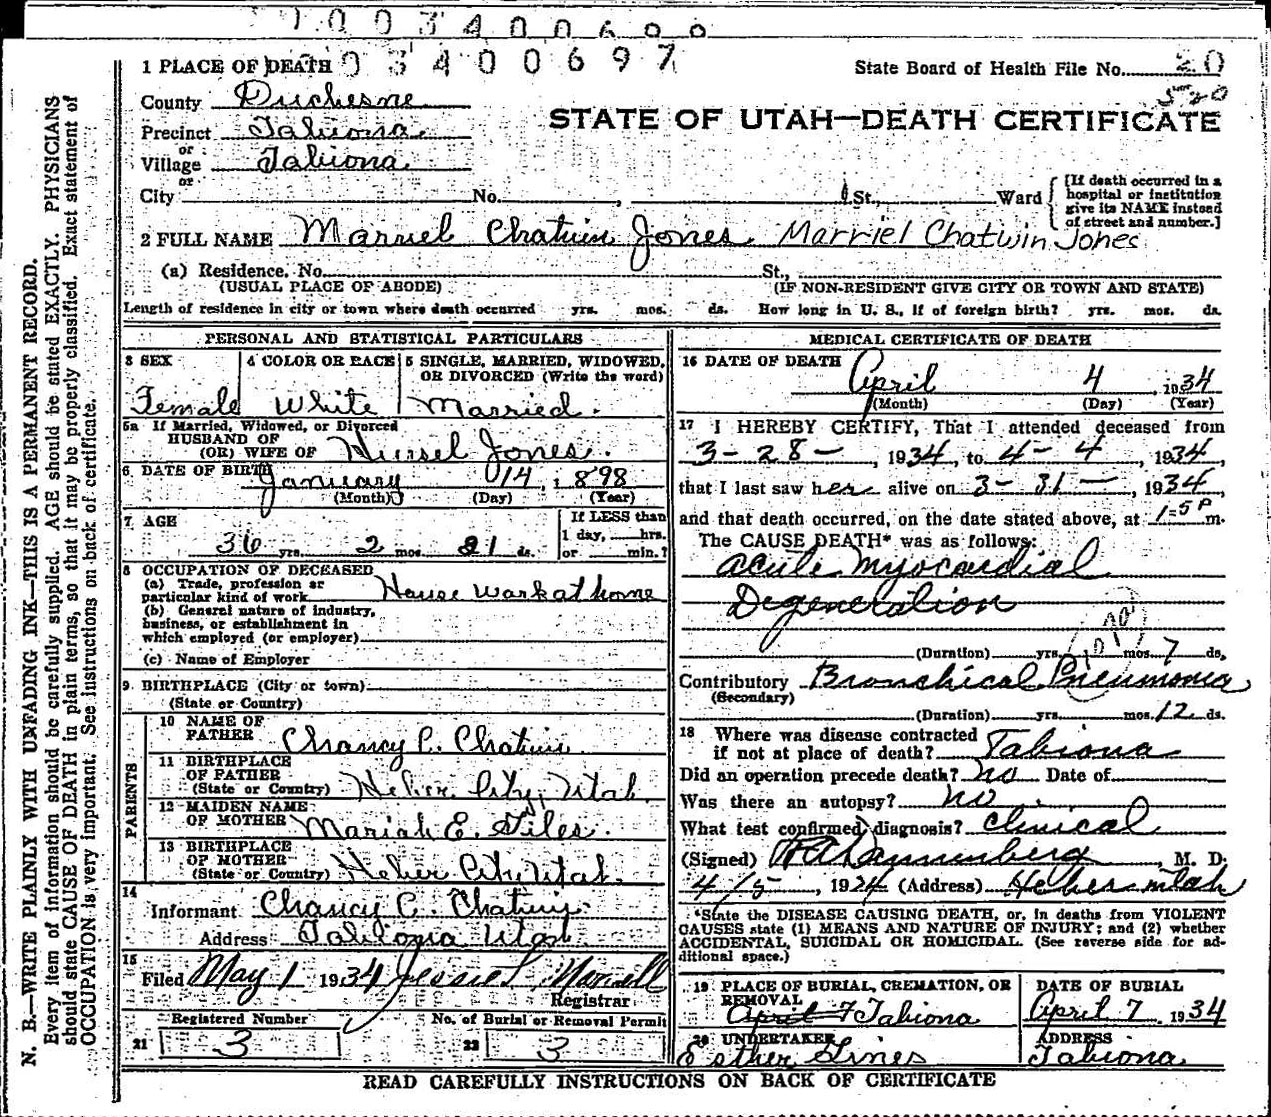 1003400690
03400697
1 PLACE OF DEATH
State Board of Health File No. 20
520
County Duchesne
STATE OF UTAH—DEATH CERTIFICATE
Precinct Tabiona
or
Village Tabiona
or
City No. , St., Ward
[If death occurred in a hospital or institution give its NAME instead of street and number.]
2 FULL NAME Marriel Chatwin Jones. Marriel Chatwin Jones
(a) Residence. No. St.,
(USUAL PLACE OF ABODE) (IF NON-RESIDENT GIVE CITY OR TOWN AND STATE)
Length of residence in city or town where death occurred yrs. mos. ds. How long in U. S., if of foreign birth? yrs. mos. ds.
PERSONAL AND STATISTICAL PARTICULARS
3 SEX 4 COLOR OR RACE 5 SINGLE, MARRIED, WIDOWED, OR DIVORCED (Write the word)
Female White Married.
5a If Married, Widowed, or Divorced
HUSBAND OF
(OR) WIFE OF Jones.
6 DATE OF BIRTH January 14, 1898
(Month) (Day) (Year)
7 AGE
If LESS than
1 day, hrs.
or min.?
36 yrs. 2 mos. 21 ds.
8 OCCUPATION OF DECEASED
(a) Trade, profession or
particular kind of work House Work at home
(b) General nature of industry,
business, or establishment in
which employed (or employer)
(c) Name of Employer
9 BIRTHPLACE (City or town)
(State or Country)
PARENTS
10 NAME OF
FATHER Chancy C. Chatwin
11 BIRTHPLACE
OF FATHER
(State or Country) Heber City, Utah
12 MAIDEN NAME
OF MOTHER Mariah E. Giles.
13 BIRTHPLACE
OF MOTHER
(State or Country) Heber City Utah.
14
Informant Chancy C. Chatwin
Address Tabiona Utah
15
Filed May 1 1934 Jessie L. Maxwell
Registrar
Registered Number No. of Burial or Removal Permit
21 3 22 3
MEDICAL CERTIFICATE OF DEATH
16 DATE OF DEATH
April 4 1934
(Month) (Day) (Year)
17 I HEREBY CERTIFY, That I attended deceased from
3-28-, 1934, to 4-4, 1934,
that I last saw her alive on 3-31-, 1934
and that death occurred, on the date stated above, at 1-5P m.
The CAUSE DEATH* was as follows:
Acute Myocardial
Degeneration
(Duration) yrs. mos. 7 ds.
Contributory Bronchical Pneumonia
(Secondary)
(Duration) yrs. mos. 12 ds.
18 Where was disease contracted
if not at place of death? Tabiona
Did an operation precede death? no Date of
Was there an autopsy? no.
What test confirmed diagnosis? Clinical
(Signed) Dannenberg, M. D.
4/5, 1934 (Address) Heber Utah
*State the DISEASE CAUSING DEATH, or, in deaths from VIOLENT
CAUSES state (1) MEANS AND NATURE OF INJURY; and (2) whether
ACCIDENTAL, SUICIDAL OR HOMICIDAL. (See reverse side for ad-
ditional space.)
19 PLACE OF BURIAL, CREMATION, OR
REMOVAL
April 7 Tabiona
DATE OF BURIAL
April 7, 1934
20 UNDERTAKER
Esther Gines
ADDRESS
Tabiona.
READ CAREFULLY INSTRUCTIONS ON BACK OF CERTIFICATE
N. B.—WRITE PLAINLY WITH UNFADING INK—THIS IS A PERMANENT RECORD.
Every item of information should be carefully supplied. AGE should be stated EXACTLY. PHYSICIANS
should state CAUSE OF DEATH in plain terms, so that it may be properly classified. Exact statement of
OCCUPATION is very important. See instructions on back of certificate.